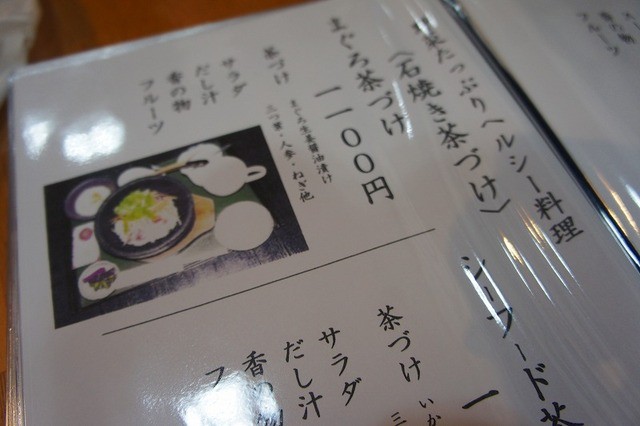 香の物
フルーツ
野菜たっぷりヘルシー料理
〈石焼き茶づけ〉
まぐろ茶づけ 一一〇〇円
茶づけ まぐろ生姜醤油漬け
三つ葉・人参・ねぎ他
サラダ
だし汁
香の物
フルーツ
シーフード茶 一
茶づけ いか
三
サラダ
だし汁
香の物
フ